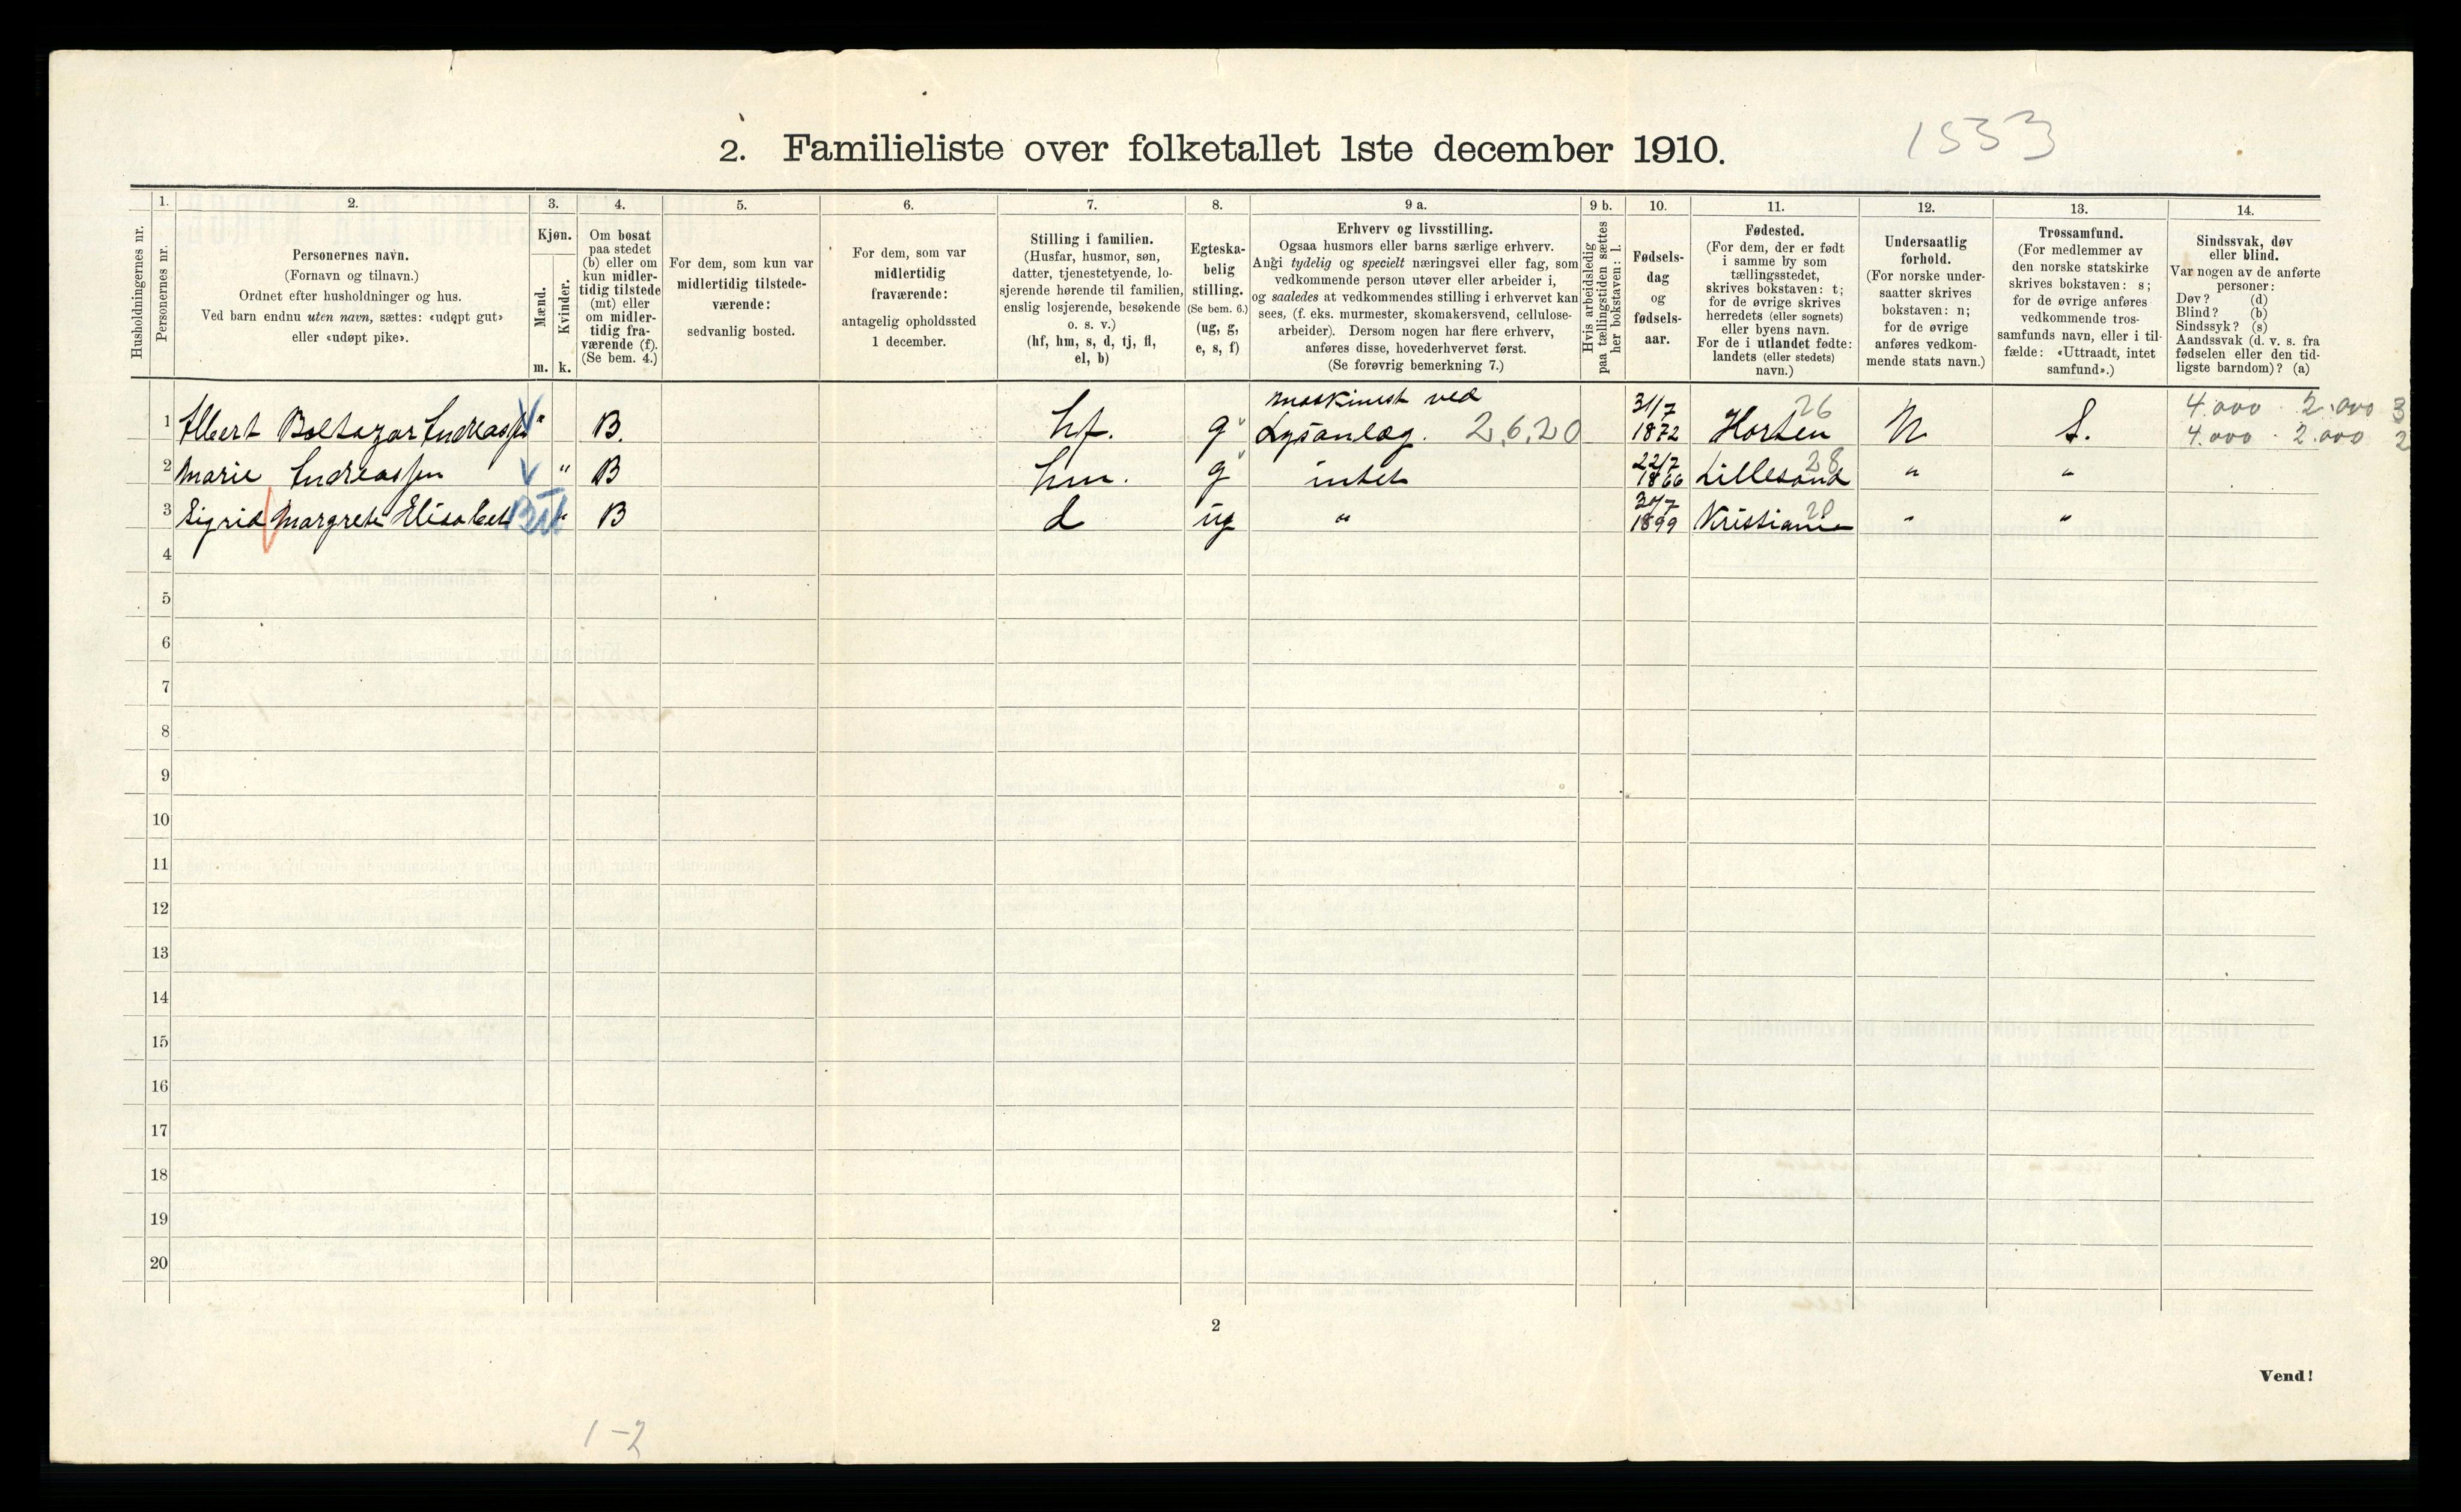 1533
2. Familieliste over folketallet 1ste december 1910.
Husholdningernes nr.
1.
Personernes nr.
2.
Personernes navn.
(Fornavn og tilnavn.)
Ordnet efter husholdninger og hus.
Ved barn endnu uten navn, sættes: «udøpt gut»
eller «udøpt pike».
3.
Kjøn.
Mænd.
Kvinder.
m. k.
4.
Om bosat
paa stedet
(b) eller om
kun midler-
tidig tilstede
(mt) eller
om midler-
tidig fra-
værende (f).
(Se bem. 4.)
5.
For dem, som kun var
midlertidig tilstede-
værende:
sedvanlig bosted.
6.
For dem, som var
midlertidig
fraværende:
antagelig opholdssted
1 december.
7.
Stilling i familien.
(Husfar, husmor, søn,
datter, tjenestetyende, lo-
sjerende hørende til familien,
enslig losjerende, besøkende
o. s. v.)
(hf, hm, s, d, tj, fl,
el, b)
8.
Egteska-
belig
stilling.
(Se bem. 6.)
(ug, g,
e, s, f)
9 a.
Erhverv og livsstilling.
Ogsaa husmors eller barns særlige erhverv.
Angi tydelig og specielt næringsvei eller fag, som
vedkommende person utøver eller arbeider i,
og saaledes at vedkommendes stilling i erhvervet kan
sees, (f. eks. murmester, skomakersvend, cellulose-
arbeider). Dersom nogen har flere erhverv,
anføres disse, hovederhvervet først.
(Se forøvrig bemerkning 7.)
9 b.
Hvis arbeidsledig
paa tællingstiden sættes
her bokstaven: l.
10.
Fødsels-
dag
og
fødsels-
aar.
11.
Fødested.
(For dem, der er født
i samme by som
tællingsstedet,
skrives bokstaven: t;
for de øvrige skrives
herredets (eller sognets)
eller byens navn.
For de i utlandet fødte:
landets (eller stedets)
navn.)
12.
Undersaatlig
forhold.
(For norske under-
saatter skrives
bokstaven: n;
for de øvrige
anføres vedkom-
mende stats navn.)
13.
Trossamfund.
(For medlemmer av
den norske statskirke
skrives bokstaven: s;
for de øvrige anføres
vedkommende tros-
samfunds navn, eller i til-
fælde: «Uttraadt, intet
samfund».)
14.
Sindssvak, døv
eller blind.
Var nogen av de anførte
personer:
Døv? (d)
Blind? (b)
Sindssyk? (s)
Aandssvak (d. v. s. fra
fødselen eller den tid-
ligste barndom)? (a)
maskinist ved 31/7 26 4.000 · 2.000 3
1 Albert Baltazar Andreassen " B. hf. g Lysanlæg. 2.6.20 1872 Horten N S. 4.000 · 2.000 2
22/7 28
2 Marie Andreassen " B hm. g intet 1866 Lillesand " "
30/7 20
3 Sigrid Margrete Elisabet " B d ug " 1899 Kristiania " "
4
5
6
7
8
9
10
11
12
13
14
15
16
17
18
19
20
2
Vend!
1-2